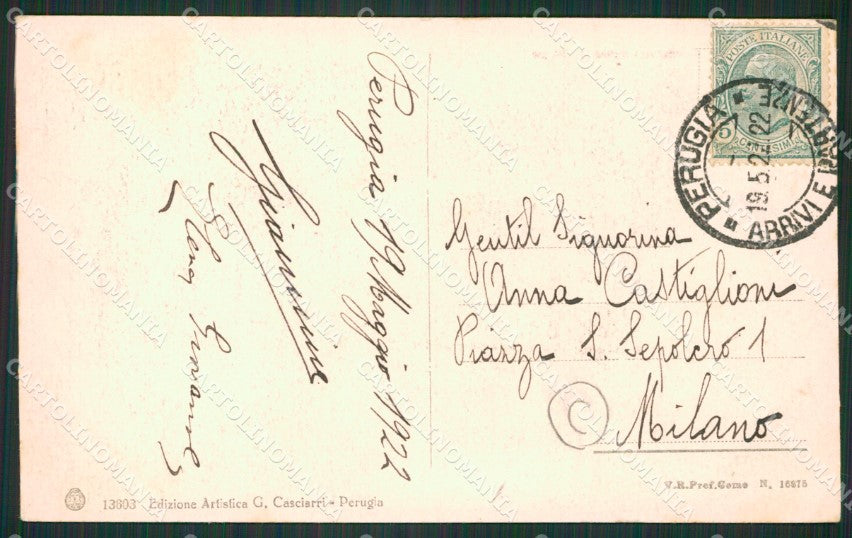 Perugia 19 Maggio 1922
Giannina
POSTE ITALIANE
CENTESIMI
PERUGIA
ARRIVI E PARTENZE
19.5.22 22
Gentil Signorina
Anna Castiglioni
Piazza S. Sepolcro 1
Milano
C
13603 Edizione Artistica G. Casciarri - Perugia
V.R.Pref.Como N. 16875
CARTOLINOMANIA